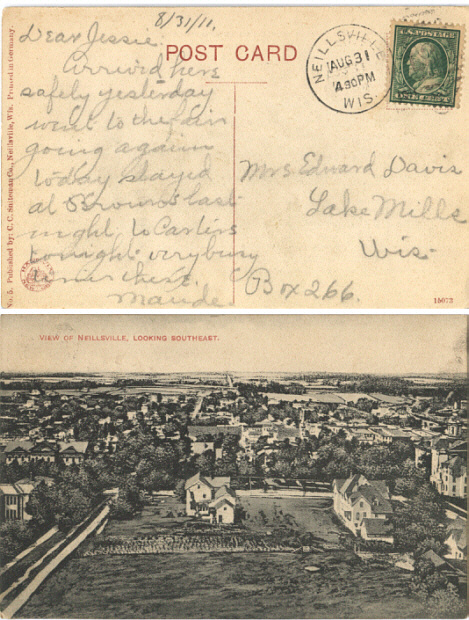 8/31/11.
Dear Jessie.
Arrived here
safely yesterday
went to the fair
going again
today stayed
at Browns last
night, to Carters
tonight. very busy
Maude
POST CARD
NEILLSVILLE
AUG 31
4:30PM
WIS.
U.S. POSTAGE
Mrs Edward Davis
Lake Mills
Wis.
Box 266.
No. 5. Published by: C. C. Sniteman Co., Neillsville, Wis. Printed in Germany.
15672
VIEW OF NEILLSVILLE, LOOKING SOUTHEAST.